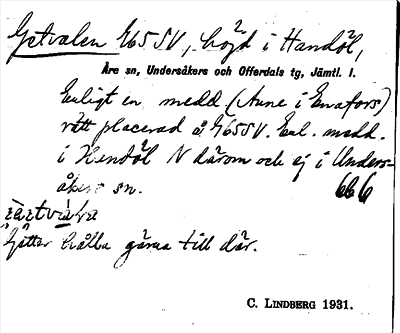 Getvalen 465SV, höjd i Handöl,
Åre sn, Undersåkers och Offerdals tg, Jämtl. l.
Enligt en medd (Aune i Enafors)
rätt placerad å 465SV. Enl. medd.
i Handöl N därom och ej i Unders-
åkers sn. 666
gärna till där.
C. LINDBERG 1931.